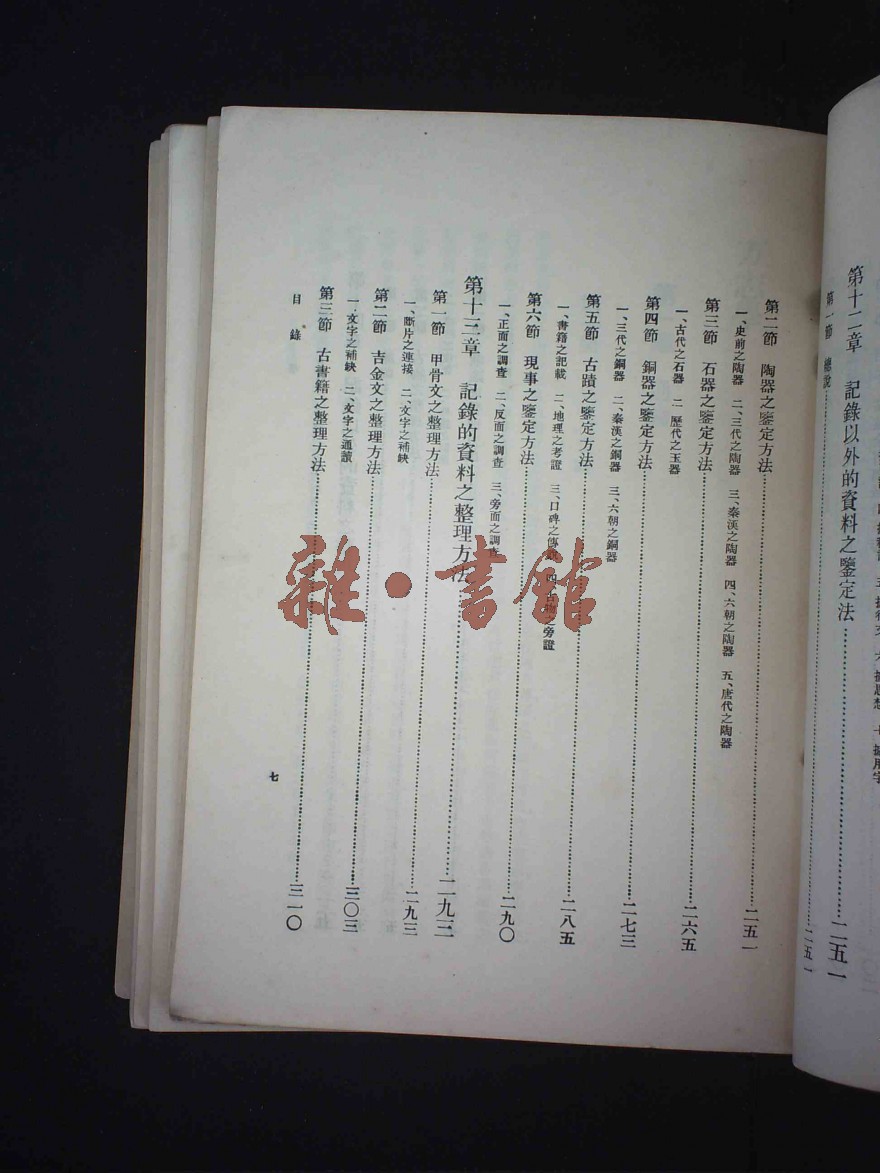 第十二章　記錄以外的資料之鑒定法……二五一
第一節　總說……二五一
第二節　陶器之鑒定方法……二五一
一、史前之陶器　二、三代之陶器　三、秦漢之陶器　四、六朝之陶器　五、唐代之陶器
第三節　石器之鑒定方法……二六五
一、古代之石器　二、歷代之玉器
第四節　銅器之鑒定方法……二七三
一、三代之銅器　二、秦漢之銅器　三、六朝之銅器
第五節　古蹟之鑒定方法……二八五
一、書籍之記載　二、地理之考證　三、口碑之傳說　四、古物之旁證
第六節　現事之鑒定方法……二九〇
一、正面之調查　二、反面之調查　三、旁面之調查
第十三章　記錄的資料之整理方法……二九三
第一節　甲骨文之整理方法……二九三
一、斷片之連接　二、文字之補缺
第二節　吉金文之整理方法……三〇三
一、文字之補缺　二、文字之通讀
第三節　古書籍之整理方法……三一〇
目錄
七
雜·書館